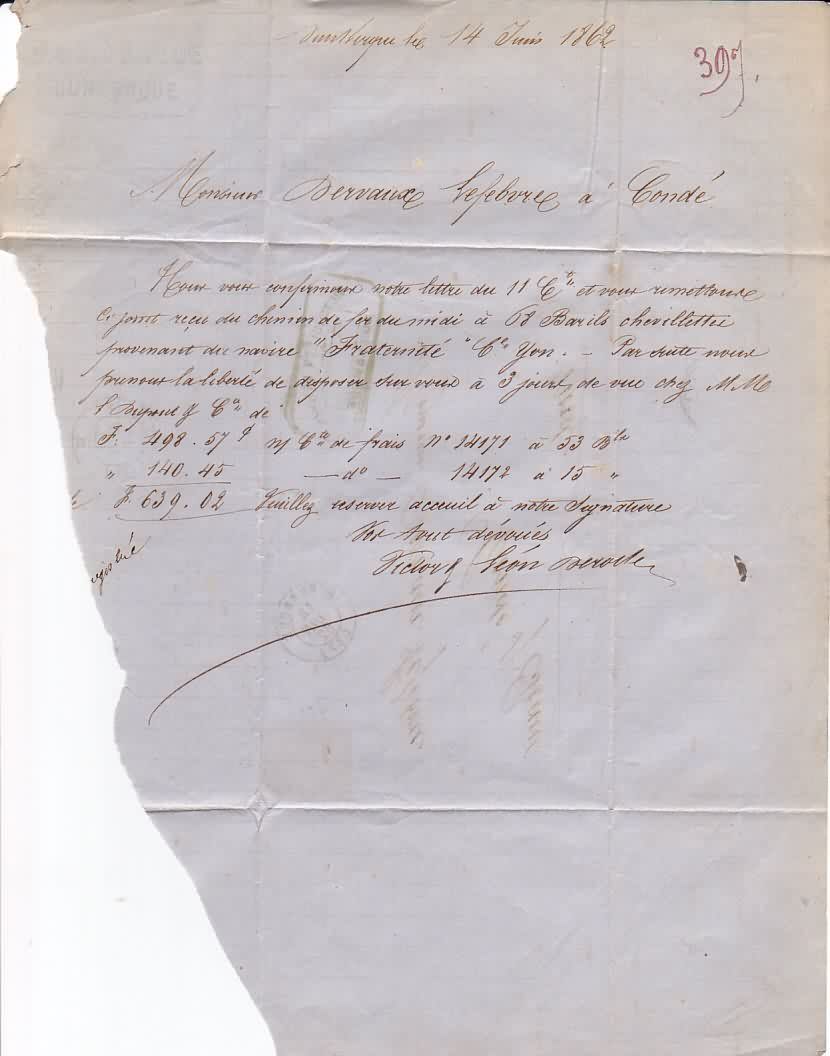 Dunkerque le 14 Juin 1862
397.
Monsieur Dervaux Lefebvre à Condé
Nous vous confirmons notre lettre du 11 Ct et vous remettons
Ci joint reçu du chemin de fer du midi à 68 Barils chevillettes
provenant du navire "Fraternité" Cne Yon. — Par suite nous
prenons la liberté de disposer sur vous à 3 jours de vue chez MM
L Dupont & Cie de
F. 498.57 p n/ Cte de frais No 14171 à 53 Bls
" 140.45 — do — 14172 à 15 "
F 639.02 Veuillez réserver accueil à notre Signature
Vos tout dévoués
Victor & Léon Derode